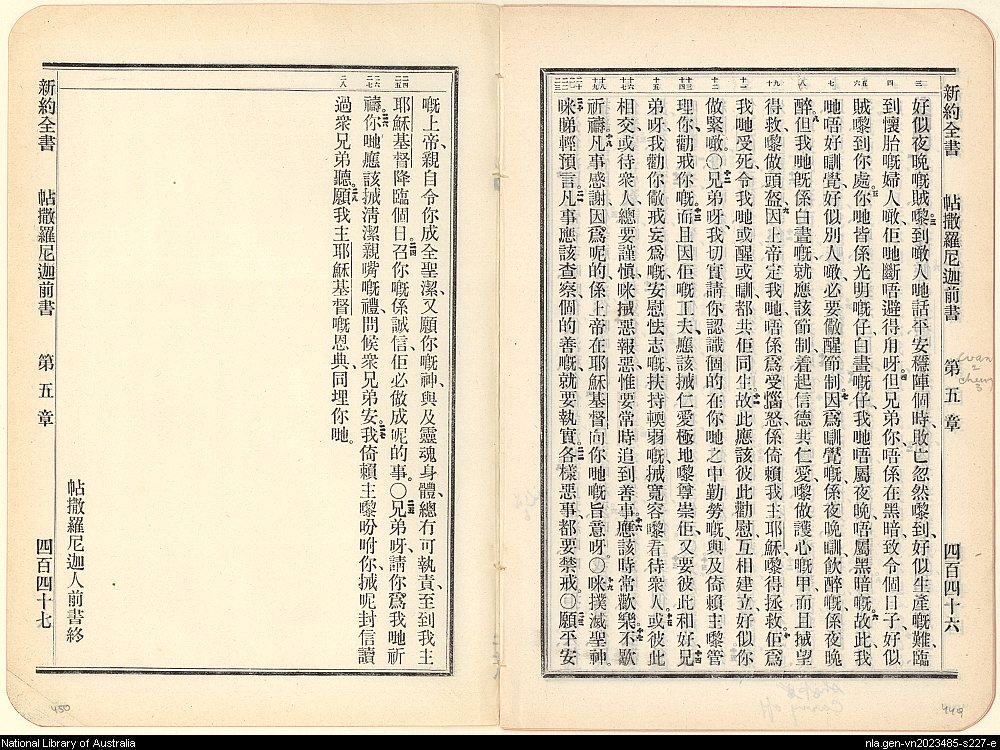 新約全書 帖撒羅尼迦前書 第五章 四百四十六
好似夜晚嘅賊嚟到噉人哋話平安穩陣個時敗亡忽然嚟到好似生產嘅難臨
到懷胎嘅婦人噉佢哋斷唔避得用呀但兄弟你唔係在黑暗致令個日子好似
賊嚟到你處你哋皆係光明嘅仔白晝嘅仔我哋唔屬夜晚唔屬黑暗嘅故此我
哋唔好瞓覺好似別人噉必要儆醒節制因爲瞓覺嘅係夜晚瞓飲醉嘅係夜晚
醉但我哋旣係白晝嘅就應該節制着起信德共仁愛嚟做護心嘅甲而且𢬿望
得救嚟做頭盔因上帝定我哋唔係爲受惱怒係倚賴我主耶穌嚟得拯救佢爲
我哋受死令我哋或醒或瞓都共佢同生故此應該彼此勸慰互相建立好似你
做緊噉〇兄弟呀我切實請你認識個的在你哋之中勤勞嘅與及倚賴主嚟管
理你勸戒你嘅而且因佢嘅工夫應該𢬿仁愛極地嚟尊崇佢又要彼此和好兄
弟呀我勸你儆戒妄爲嘅安慰怯志嘅扶持輭弱嘅𢬿寬容嚟看待衆人或彼此
相交或待衆人總要謹愼咪𢬿惡報惡惟要常時追到善事應該時常歡樂不歇
祈禱凡事感謝因爲呢的係上帝在耶穌基督向你哋嘅旨意呀〇咪撲滅聖神
咪睇輕預言凡事應該查察個的善嘅就要執實各樣惡事都要禁戒〇願平安
嘅上帝親自令你成全聖潔又願你嘅神與及靈魂身體總有可執責至到我主
耶穌基督降臨個日召你嘅係誠信佢必做成呢的事〇兄弟呀請你爲我哋祈
禱你哋應該𢬿清潔親嘴嘅禮問候衆兄弟安我倚賴主嚟吩咐你𢬿呢封信讀
過衆兄弟聽願我主耶穌基督嘅恩典同埋你哋
帖撒羅尼迦人前書終
新約全書 帖撒羅尼迦前書 第五章 四百四十七
450
449
National Library of Australia
nla.gen-vn2023485-s227-e